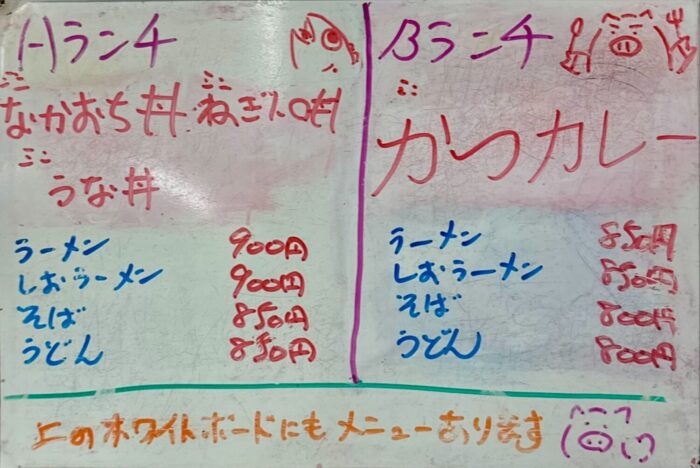 Aランチ
ミニ ミニ
なかおち丼 ねぎトロ丼
ミニ
うな丼
ラーメン 900円
しおラーメン 900円
そば 850円
うどん 850円
Bランチ
ミニ
かつカレー
ラーメン 850円
しおラーメン 850円
そば 800円
うどん 800円
上のホワイトボードにもメニューあります